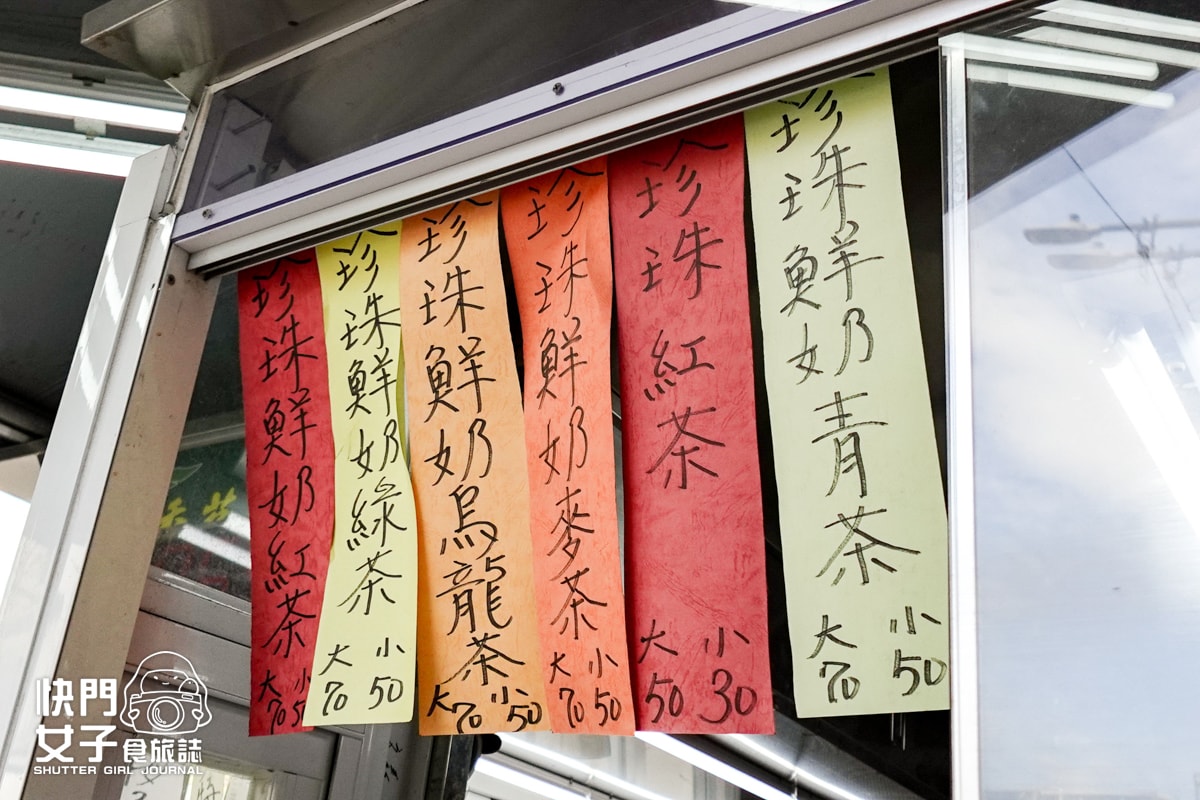 珍珠鮮奶紅茶
大70 小50
珍珠鮮奶綠茶
大70 小50
珍珠鮮奶烏龍茶
大70 小50
珍珠鮮奶麥茶
大70 小50
珍珠紅茶
大50 小30
珍珠鮮奶青茶
大70 小50
快門
女子食旅誌
SHUTTER GIRL JOURNAL